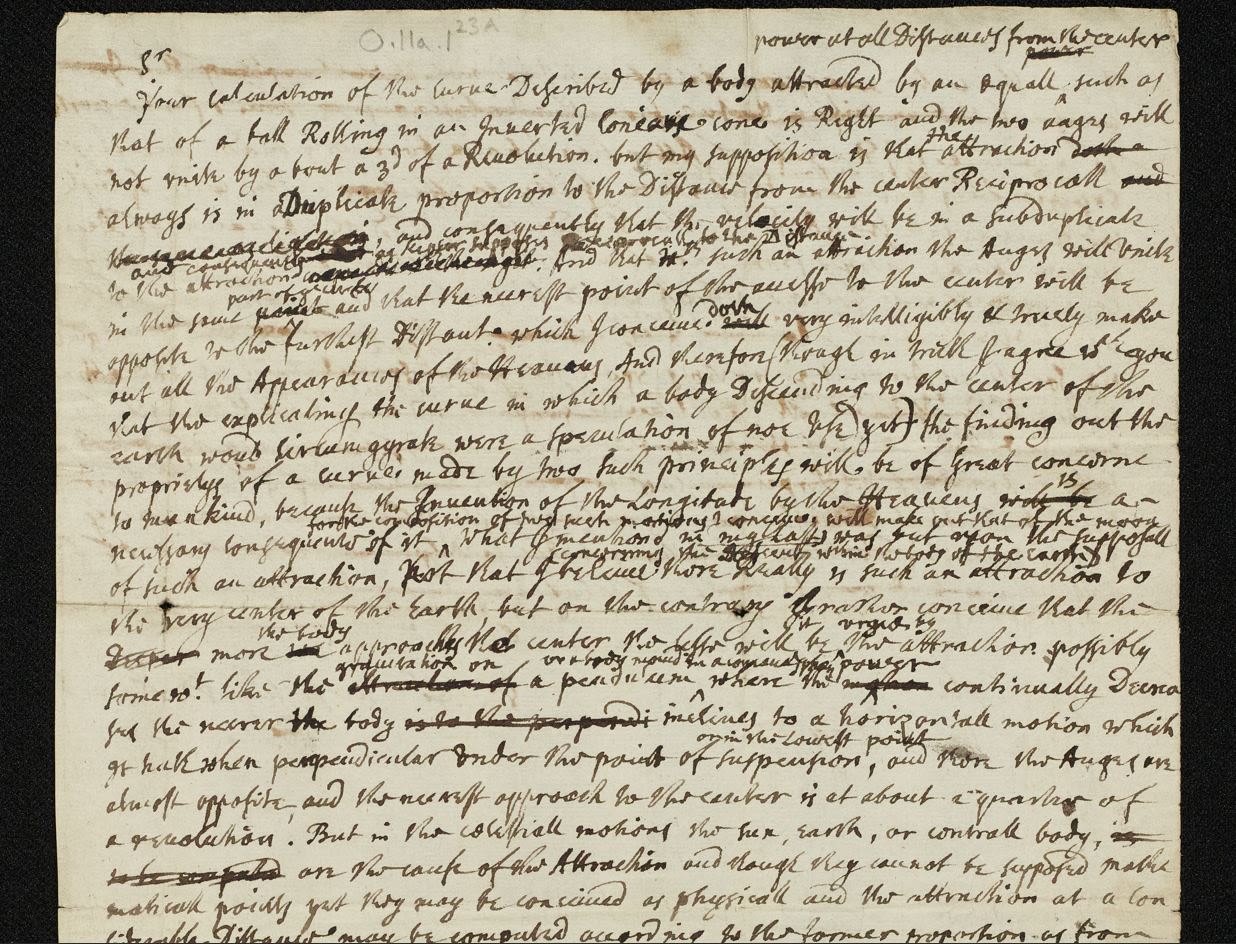 O.11a.1 23A
power at all Distances from the center
power
Sr
Your Calculation of the Curve Described by a body attracted by an equall such as
that of a ball Rolling in an Inverted Concave cone is Right and the two auges will
not unite by about a 3d of a Revolution. but my supposition is that the attraction
always is in a Duplicate proportion to the Distance from the center Reciprocall and
, and consequently that the velocity will be in a subduplicate
and consequently as Kepler supposes Reciprocall to the Distance
to the attraction. And that wth such an attraction the Auges will unite
part of ye circle
in the same and that the nearest point of the accesse to the center will be
opposite to the furthest Distant. which I conceive doth will very intelligibly & truely make
out all the Appearances of the Heavens. And therefore (though in truth I agree wth you
that the explicating the curve in which a body Descending to the center of the
earth would circumgyrate were a speculation of noe Use yet) the finding out the
proprietys of a curve made by two such principles will be of great concerne
to mankind, because the Invention of the Longitude by the Heavens will be is a
for the composition of two such motions I conceive will make out that of the moon
necessary consequence of it. what I mentiond in my last was but upon the supposall
concerning the Descent within the body of the earth
of such an attraction, Not that I beleive there Really is such an attraction to
the very center of the Earth, but on the contrary I rather conceive that the
the body it urged by
Deeper more the approaches the center the lesse will be the attraction possibly
gravitation on or a body moved in a concave sphere power
somewt like the attraction of a pendulum where the motion continually Decrea
ses the nearer the body is to the perpendi inclines to a horizontall motion which
or in the Lowest point
it hath when perpendicular under the point of suspension, and there the Auges are
almost opposite, and the nearest approach to the center is at about a quarter of
a revolution. But in the cœlestiall motions the sun, Earth, or centrall body, is
to be computed are the cause of the Attraction and though they cannot be supposed mathe
maticall points yet they may be conceived as physicall and the attraction at a Con
siderable Distance may be computed according to the former proportion as from